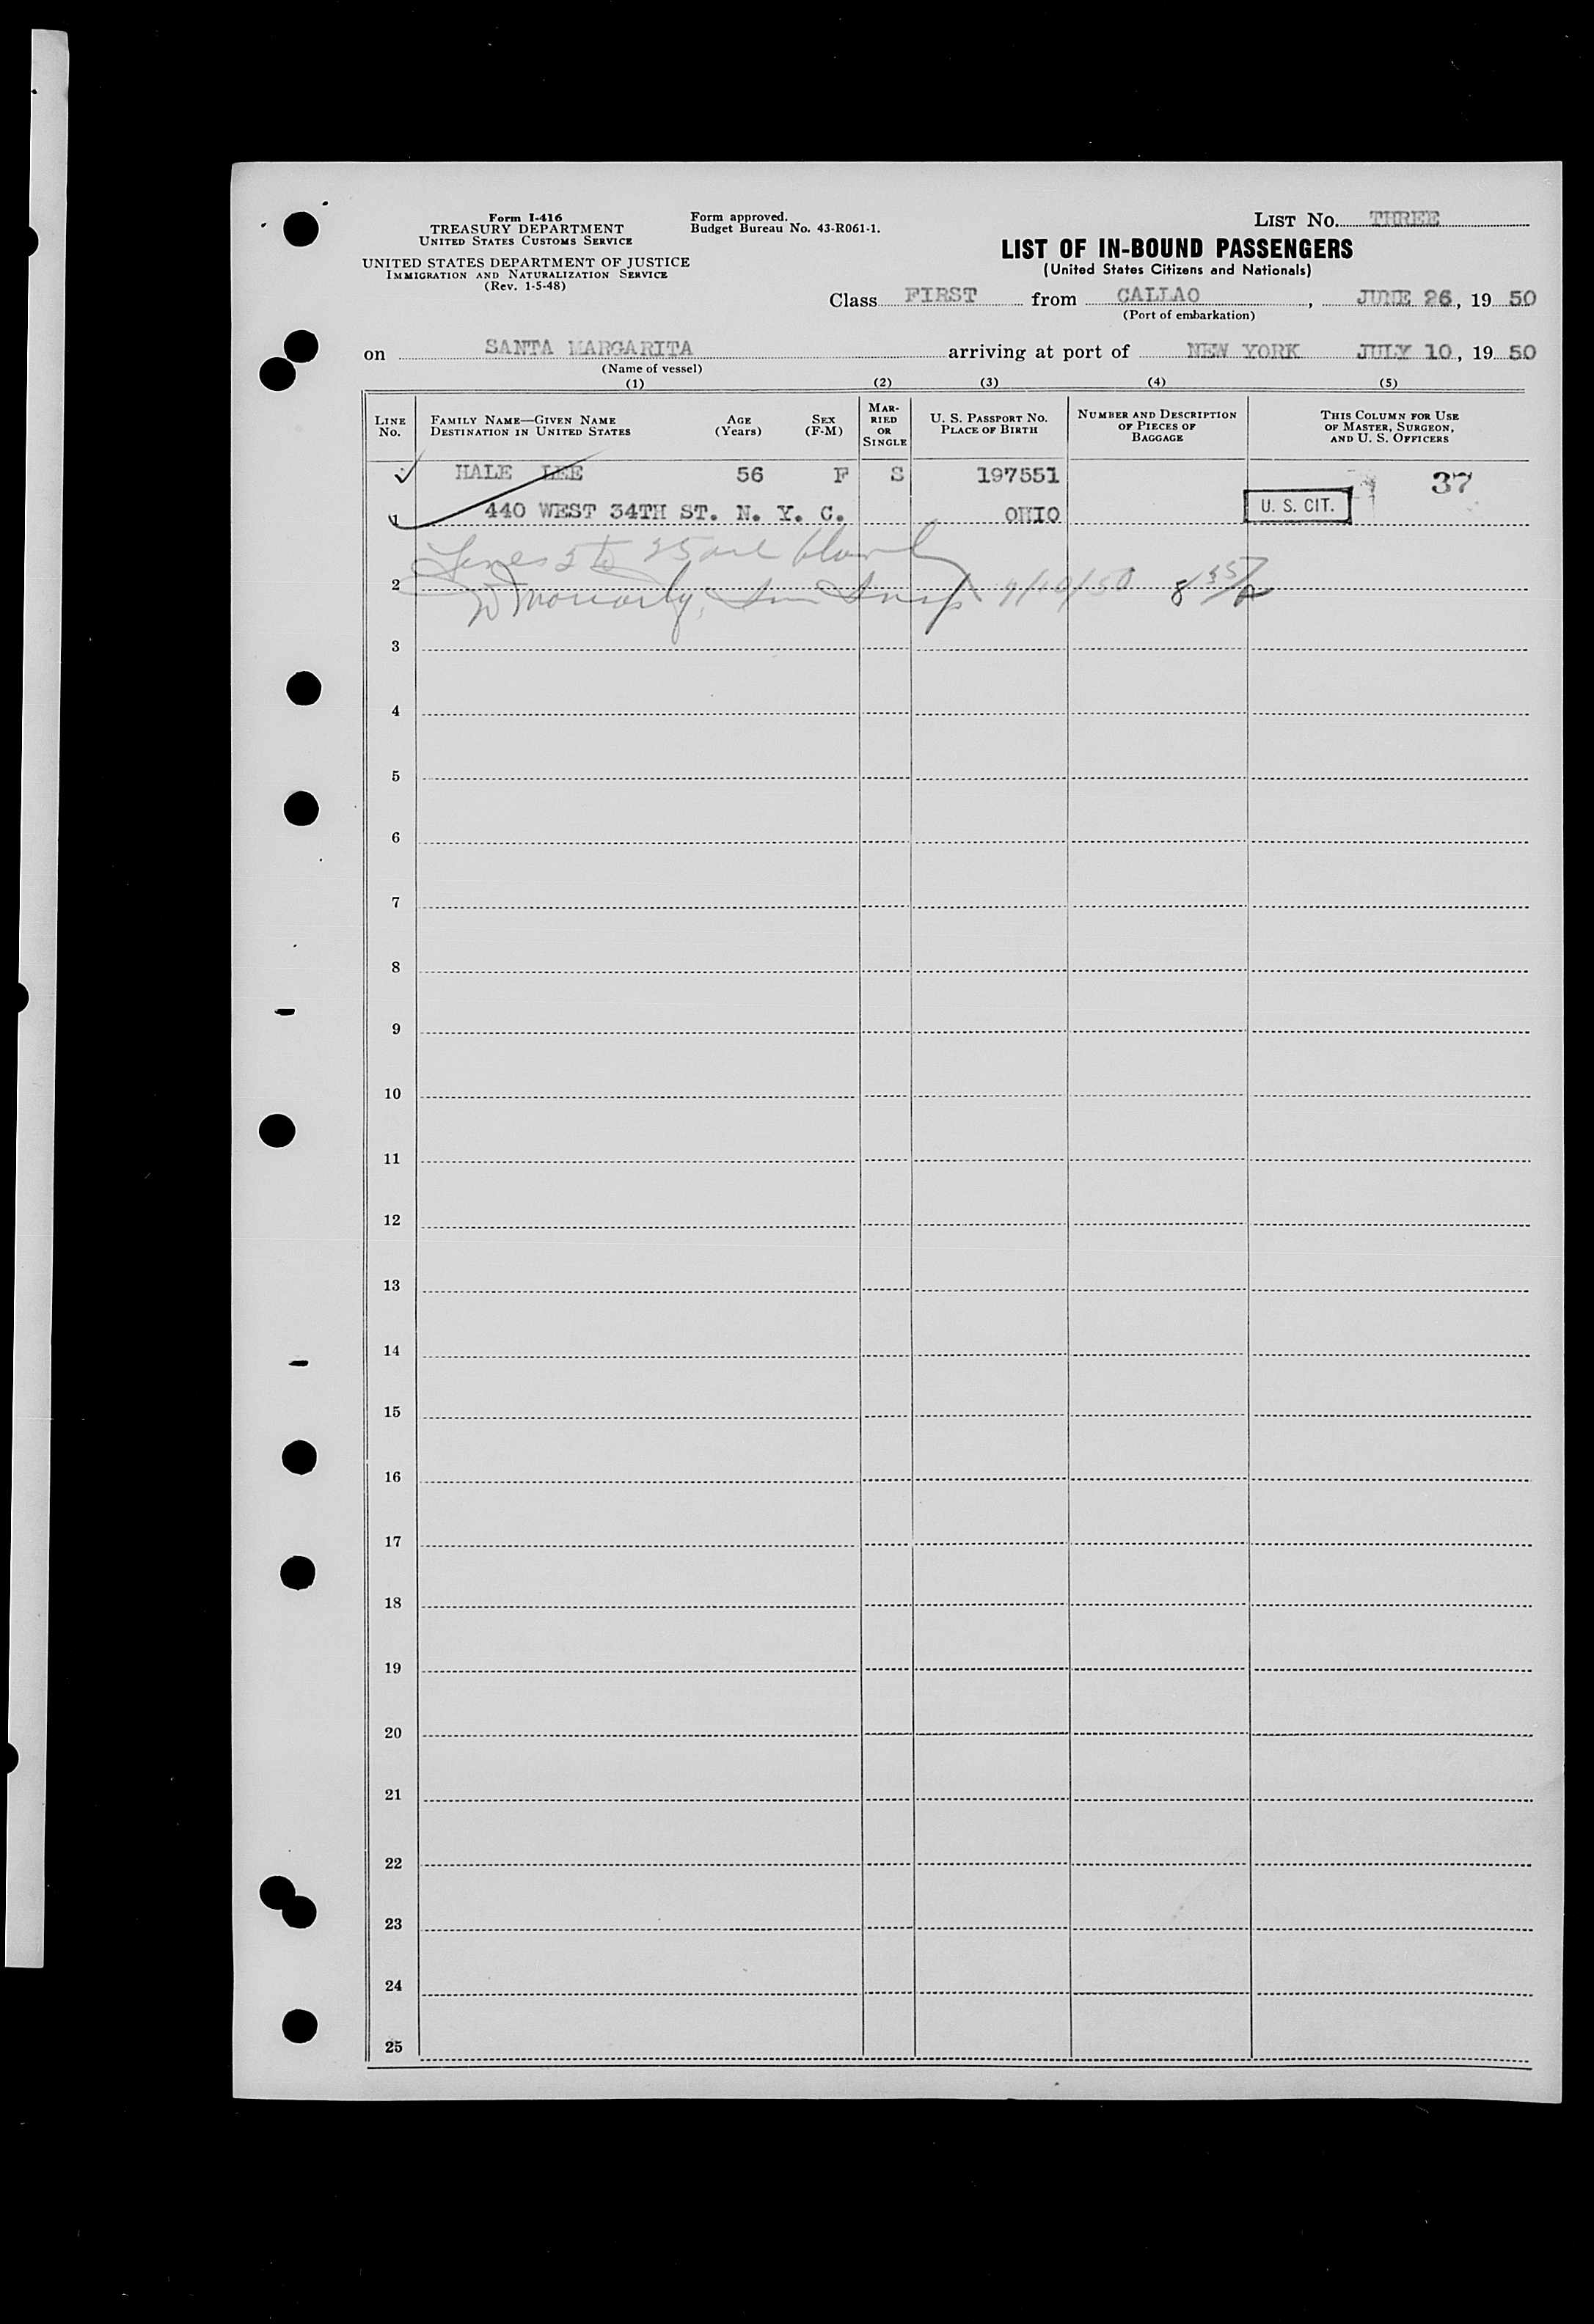 Form I-416
TREASURY DEPARTMENT
UNITED STATES CUSTOMS SERVICE
UNITED STATES DEPARTMENT OF JUSTICE
IMMIGRATION AND NATURALIZATION SERVICE
(Rev. 1-5-48)
Form approved.
Budget Bureau No. 43-R061-1.
LIST No. THREE
LIST OF IN-BOUND PASSENGERS
(United States Citizens and Nationals)
Class FIRST from CALLAO, JUNE 26, 19 50
(Port of embarkation)
on SANTA MARGARITA arriving at port of NEW YORK JULY 10, 19 50
(Name of vessel)
(1) (2) (3) (4) (5)
LINE No.
FAMILY NAME—GIVEN NAME
DESTINATION IN UNITED STATES
AGE
(Years)
SEX
(F-M)
MAR-
RIED
OR
SINGLE
U. S. PASSPORT No.
PLACE OF BIRTH
NUMBER AND DESCRIPTION
OF PIECES OF
BAGGAGE
THIS COLUMN FOR USE
OF MASTER, SURGEON,
AND U. S. OFFICERS
HALE LEE 56 F S 197551 37
1 440 WEST 34TH ST. N. Y. C. OHIO U. S. CIT.
Lines 2 to 25 are blank
2
3
4
5
6
7
8
9
10
11
12
13
14
15
16
17
18
19
20
21
22
23
24
25